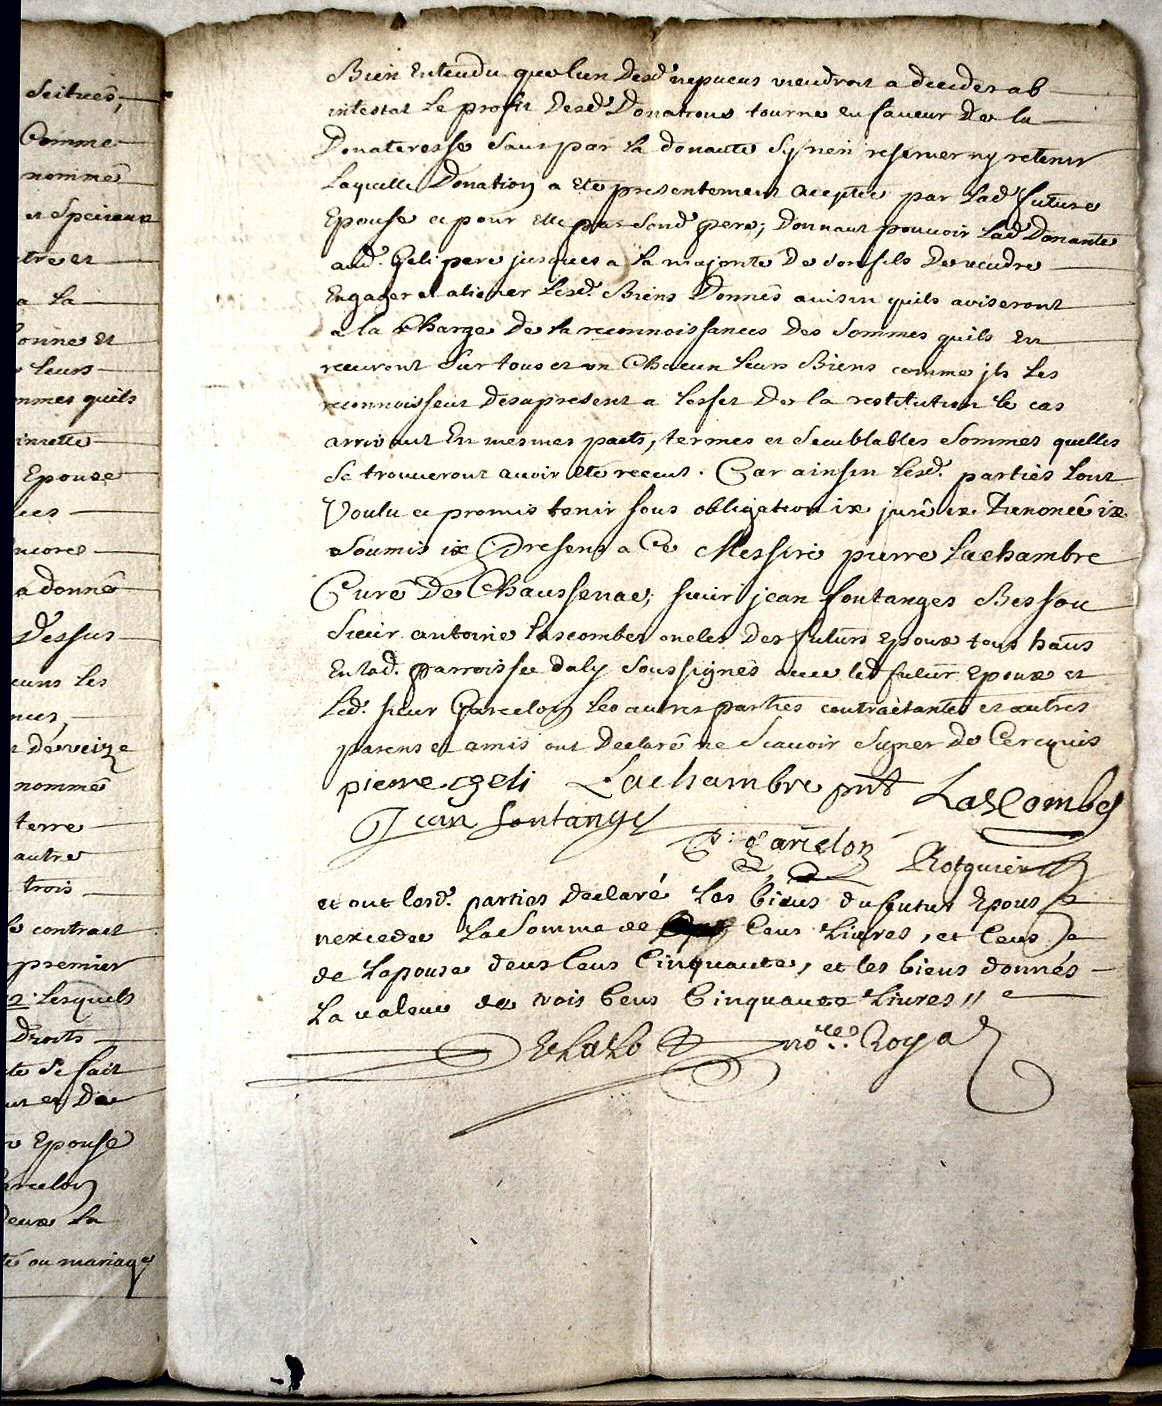 Scitués,
Comme
nommé
et Speciaux
tre et
a la
onne et
leurs
mmes quils
Epouse
ees
ncores
a donné
Dessus
cuns les
nces
nommé
terre
autre
trois
le contract
premier
lesquels
Droits
te Se fait
Epouse
arcelon
deux la
té ou mariage
Bien Entendu que lun desd. nepueus viendroit a deceder ab
intestat le profit desd. Donations tourne en faveur de la
Donateresse Sans par la donante Sy rien reserver ny retenir
Laquelle Donation a eté presentement aceptée par Lad. future
Epouse et pour elle par Sond. pere; Donnant pouvoir Lad. Donante
aud. Geli pere jusques a la majorite de Son fils De vendre
Engager et aliener lesd. Biens Donnés ainsin quils aviseront
a la charge De la reconnoissances des Sommes quils En
recevront Sur tous et un Chacun leurs Biens comme jls les
reconnoissent desapresent a lesfet De la restitution le cas
arrivant En mesmes pacts, termes et Semblables Sommes quelles
Se trouveront avoir eté receus. Car ainsin lesd. parties lont
Voulu et promis tenir sous obligation ix juré ix Renoncé ix
Soumis ix Presens a Ce Messire pierre Lachambre
Curé De Chaussenac; sieur jean fontanges Bessou
Sieur antoine Lascombes oncles des futurs epoux tous hans
En lad. parroisse daly Soussignés avec led futur Epoux et
Led. sieur Garcelon les autres parties contractantes et autres
parens et amis ont Declaré ne Scavoir Signer de Ce requis
pierre geli Lachambre pnt Lascombes
Jean fontanges
P. garcelon Rotguier
et ont lesd. parties declaré les biens du futur Epous
nexceder La Somme de Cens Livres, et Ceus
de Lepouse deus Cens Cinquante, et les biens donnés
La valeur de trois Cens Cinquante Livres //
Delalo nore. Royal